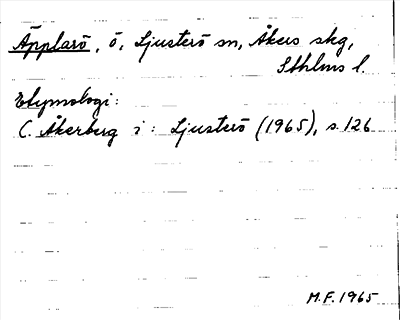 Äpplarö, ö, Ljusterö sn, Åkers skg,
Sthlms l.
Etymologi:
C. Åkerberg i: Ljusterö (1965), s. 126
M.F. 1965